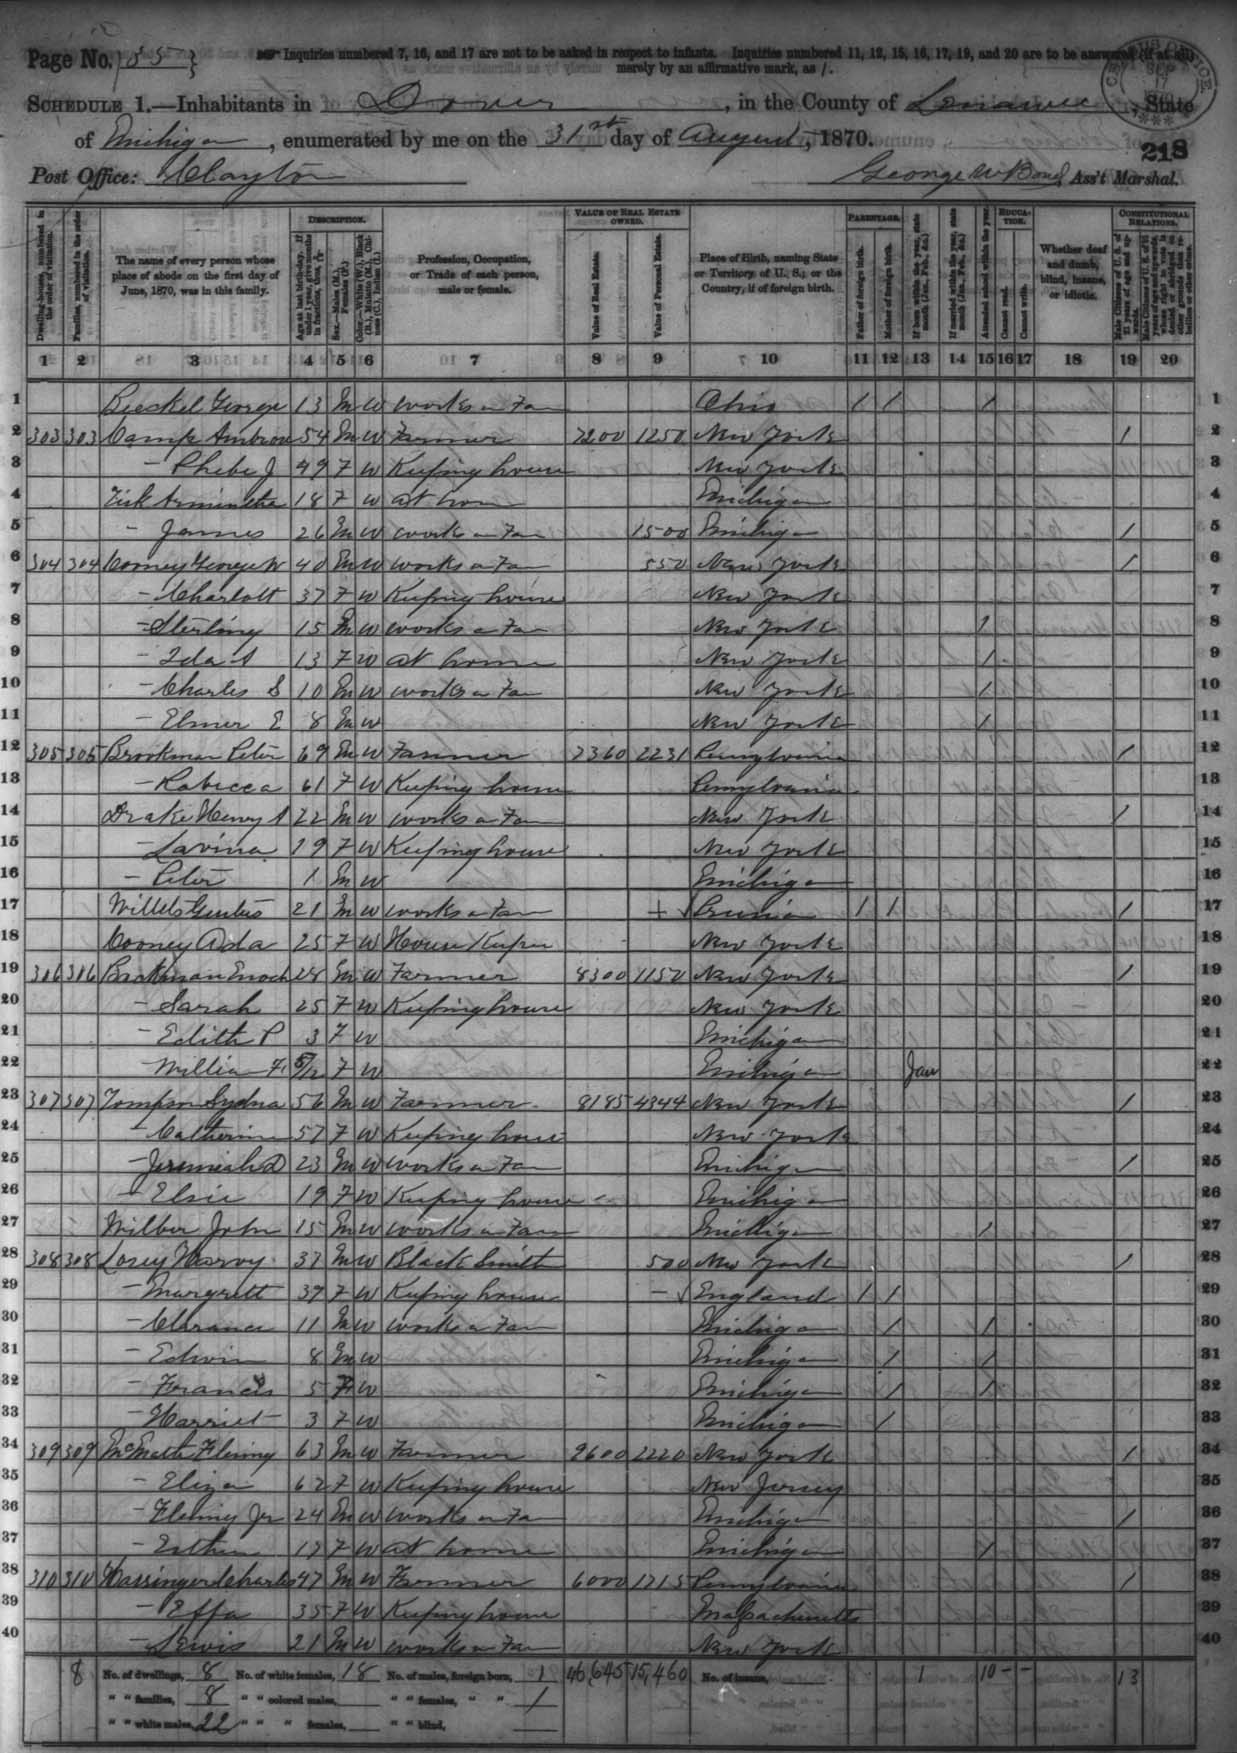 Page No. 55
Inquiries numbered 7, 16, and 17 are not to be asked in respect to infants. Inquiries numbered 11, 12, 15, 16, 17, 19, and 20 are to be answered (if at all)
merely by an affirmative mark, as /.
SCHEDULE 1.—Inhabitants in Dover, in the County of Lenawee, State
of Michigan, enumerated by me on the 31st day of August, 1870.
218
Post Office: Clayton George W Bond, Ass't Marshal.
DESCRIPTION. VALUE OF REAL ESTATE OWNED. PARENTAGE. EDUCATION. CONSTITUTIONAL RELATIONS.
Dwelling-houses, numbered in the order of visitation.
Families, numbered in the order of visitation.
The name of every person whose place of abode on the first day of June, 1870, was in this family.
Age at last birth-day. If under 1 year, give months in fractions, thus, 3/12.
Sex.—Males (M.), Females (F.)
Color.—White (W.), Black (B.), Mulatto (M.), Chinese (C.), Indian (I.)
Profession, Occupation, or Trade of each person, male or female.
Value of Real Estate.
Value of Personal Estate.
Place of Birth, naming State or Territory of U. S.; or the Country, if of foreign birth.
Father of foreign birth.
Mother of foreign birth.
If born within the year, state month (Jan., Feb., &c.)
If married within the year, state month (Jan., Feb., &c.)
Attended school within the year.
Cannot read.
Cannot write.
Whether deaf and dumb, blind, insane, or idiotic.
Male Citizens of U. S. of 21 years of age and upwards.
1 2 3 4 5 6 7 8 9 10 11 12 13 14 15 16 17 18 19 20
1 George 13 M W works on Fa Ohio / / / 1
2 303 303 Camp Ambrose 54 M W Farmer 7200 1250 New York / 2
3 – Phebe J 49 F W Keeping house New York 3
4 Fisk Armintha 18 F W at hom Michigan 4
5 – James 26 M W works on Fa 1500 Michigan / 5
6 304 304 Cooney George W 40 M W works on Fa 550 New York / 6
7 – Charlott 37 F W Keeping house New York 7
8 – Sterling 15 M W works on Fa New York / 8
9 – Ida A 13 F W at home New York / 9
10 – Charles S 10 M W works on Fa New York / 10
11 – Elmer E 8 M W New York / 11
12 305 305 Brookman Peter 69 M W Farmer 7360 2231 Pennsylvania / 12
13 – Rebecca 61 F W Keeping house Pennsylvania 13
14 Drake Henry A 22 M W works on Fa New York / 14
15 – Lavina 19 F W Keeping house New York 15
16 – Peter 1 M W Michigan 16
17 21 M W works on Fa Prussia / / / 17
18 Cooney Ada 25 F W House Keeper New York 18
19 306 306 Brokman Enoch 28 M W Farmer 8300 1150 New York / 19
20 – Sarah 25 F W Keeping house New York 20
21 – Edith P 3 F W Michigan 21
22 – Willia F. 5/12 F W Michigan Jan 22
23 307 307 Tompson Sydna 56 M W Farmer 8185 4344 New York / 23
24 – Catherine 57 F W Keeping house New York 24
25 – Jeremiah D 23 M W works on Fa Michigan / 25
26 – Elsie 19 F W Keeping house Michigan 26
27 Wilber John 15 M W works on Farm Michigan / 27
28 308 308 Losey Harvey 37 M W Black Smith 500 New York / 28
29 – Margrett 39 F W Keeping house England / / 29
30 – Clarance 11 M W works on Fa Michigan / / 30
31 – Edwin 8 M W Michigan / / 31
32 – Francis 5 F W Michigan / / 32
33 – Harriet 3 F W Michigan / 33
34 309 309 McMath Fleming 63 M W Farmer 9600 2220 New York / 34
35 – Eliza 62 F W Keeping house New Jersey 35
36 – Fleming Jr 24 M W works on Fa Michigan / 36
37 – Esther 17 F W at home Michigan / 37
38 310 310 Hassinger Charles 47 M W Farmer 6000 1715 Pennsylvania / 38
39 – Effa 35 F W Keeping house Massachusetts 39
40 – Lewis 21 M W works on Fa New York 40
8 No. of dwellings, 8 No. of white females, 18 No. of males, foreign born, 1 46,645 15,460 No. of insane, 1 10 – – 13
" " families, 8 " " colored males, " " females, " " 1
" " white males, 22 " " " females, " " blind,